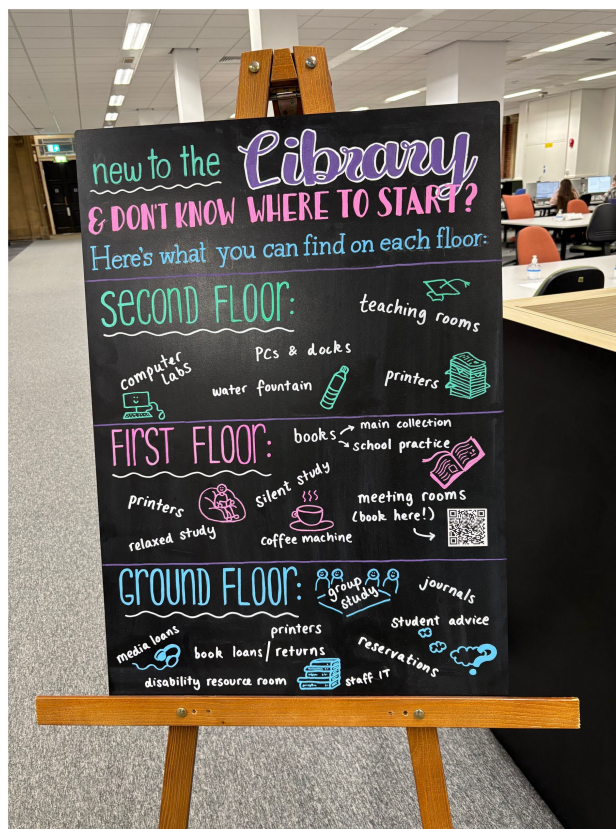 new to the Library
& DON'T KNOW WHERE TO START?
Here's what you can find on each floor:
SECOND FLOOR:
teaching rooms
computer
labs
PCs & docks
water fountain
printers
FIRST FLOOR:
books
main collection
school practice
printers
silent study
relaxed study
coffee machine
meeting rooms
(book here!)
GROUND FLOOR:
group
study
journals
media loans
printers
book loans/returns
student advice
reservations
disability resource room
staff IT